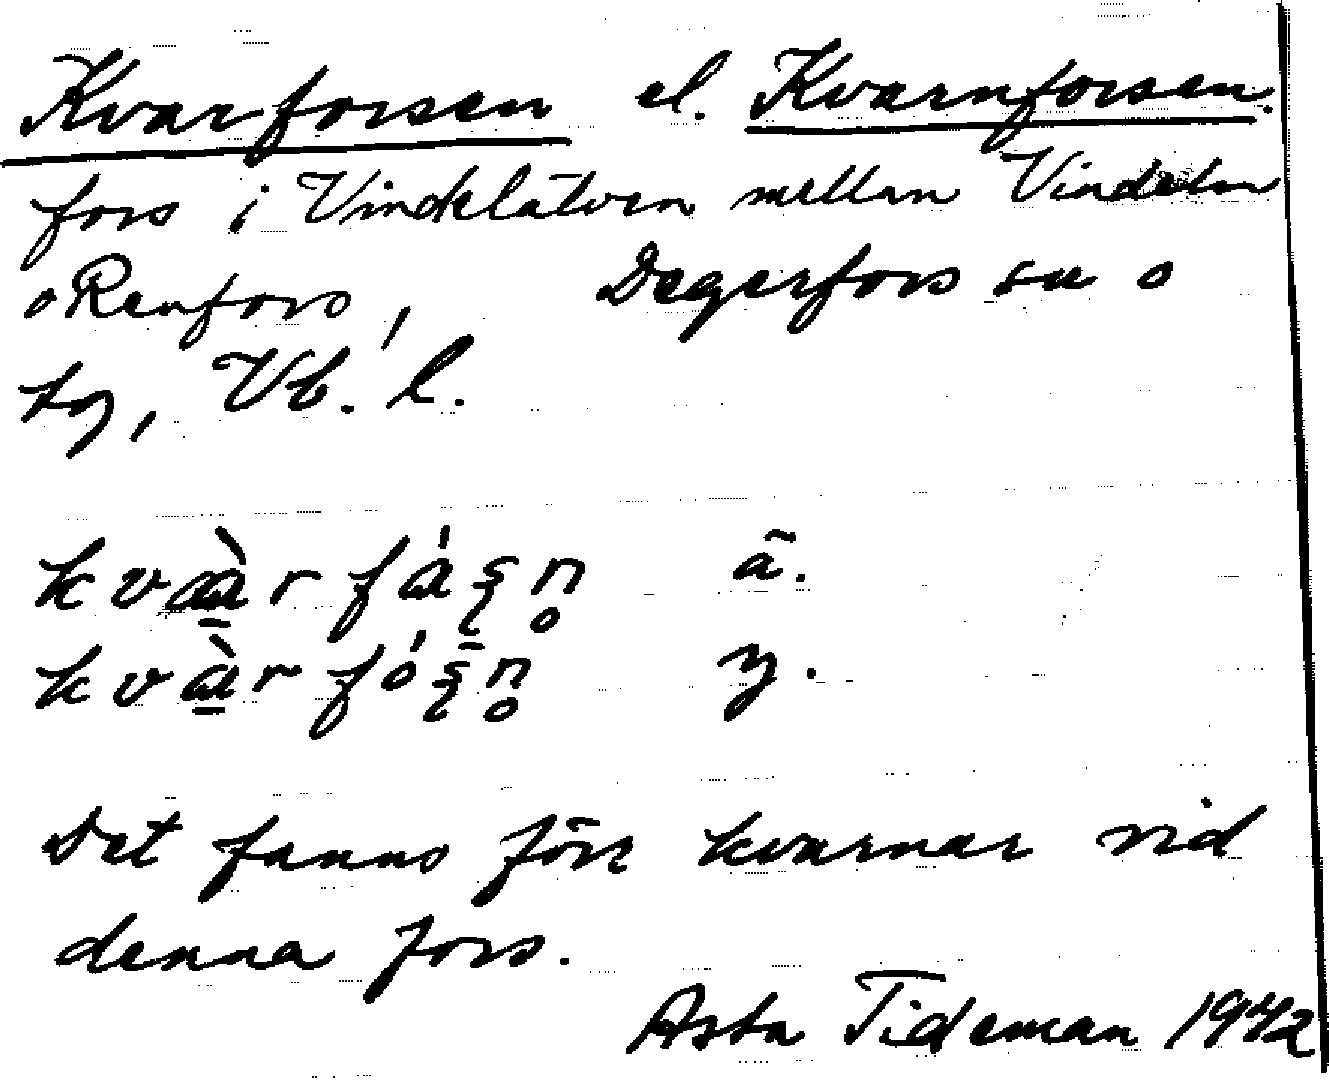 Kvarforsen el. Kvarnforsen.
fors i Vindelälven mellan Vindeln
o Renfors, Degerfors sn o
tg, Vb. l.
ä.
y.
Det fanns förr kvarnar vid
denna fors.
Asta Tideman 1942